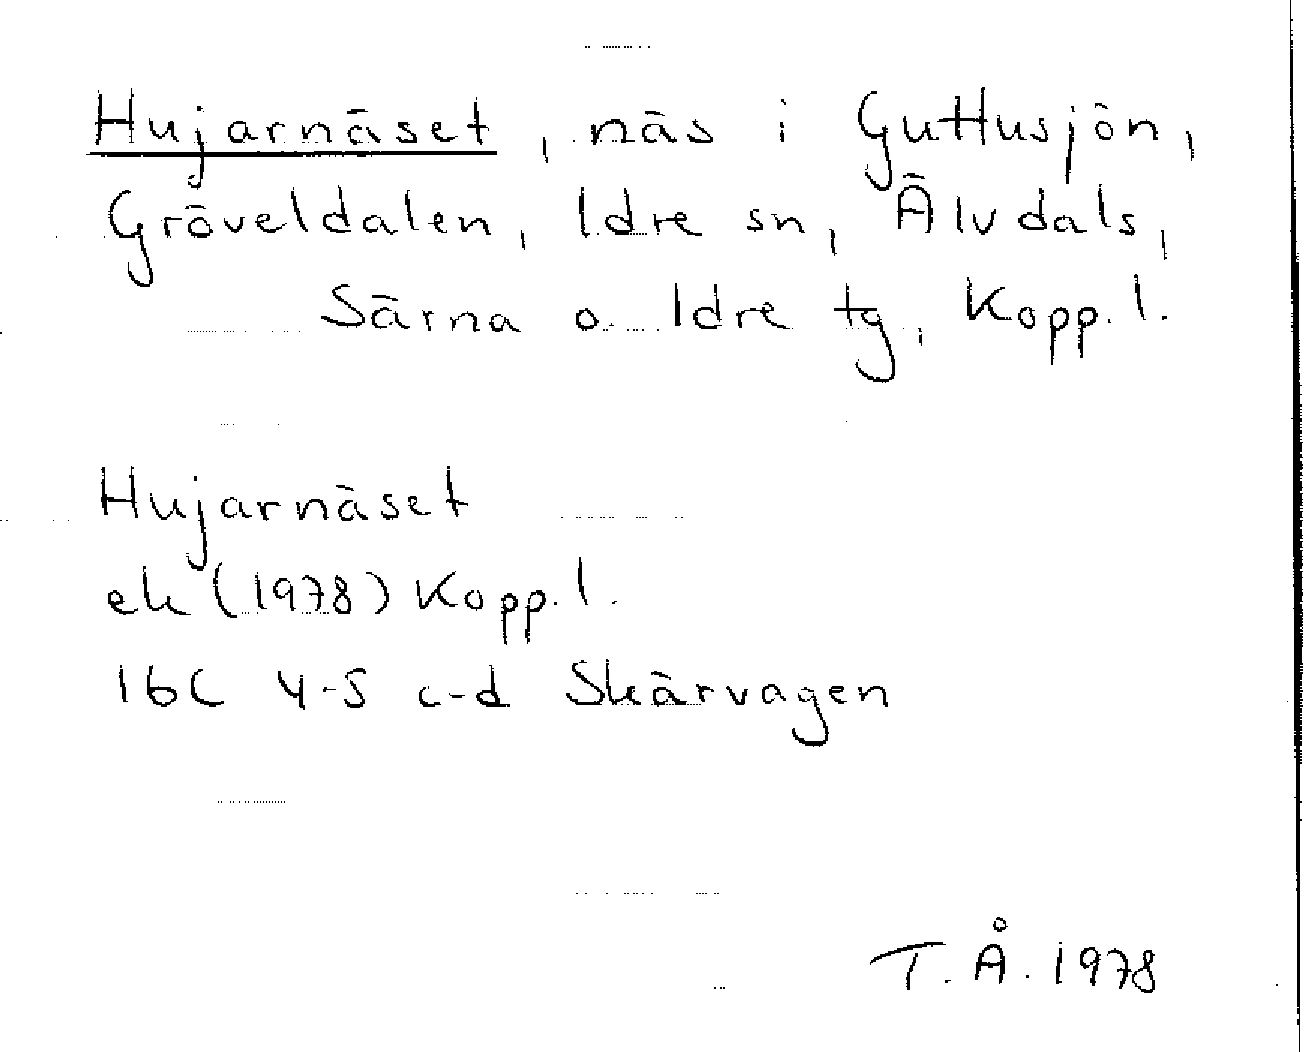 Hujarnäset, näs i Guttusjön,
Gröveldalen, Idre sn, Älvdals,
Särna o. Idre tg, Kopp. l.
Hujarnäset
ek (1978) Kopp. l.
16C 4-5 c-d Skärvagen
T. Å. 1978